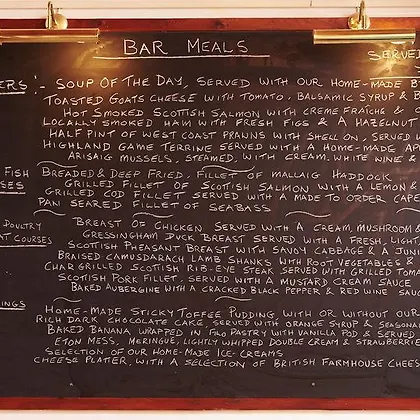 BAR MEALS
SERVED
ERS :- SOUP OF THE DAY, SERVED WITH OUR HOME-MADE B
TOASTED GOATS CHEESE WITH TOMATO, BALSAMIC SYRUP & B
HOT SMOKED SCOTTISH SALMON WITH CREME FRAÎCHE &
LOCALLY SMOKED HAM WITH FRESH FIGS & A HAZELNUT
HALF PINT OF WEST COAST PRAWNS WITH SHELL ON, SERVED
HIGHLAND GAME TERRINE SERVED WITH A HOME-MADE AP
ARISAIG MUSSELS, STEAMED, WITH CREAM, WHITE WINE &
FISH BREADED & DEEP FRIED, FILLET OF MALLAIG HADDOCK
SES GRILLED FILLET OF SCOTTISH SALMON WITH A LEMON &
GRILLED COD FILLET SERVED WITH A MADE TO ORDER CAPE
PAN SEARED FILLET OF SEABASS
POULTRY BREAST OF CHICKEN, SERVED WITH A CREAM, MUSHROOM &
AT COURSES GRESSINGHAM DUCK BREAST SERVED WITH A FRESH, LIGHT
SCOTTISH PHEASANT BREAST WITH SAVOY CABBAGE & A JUNI
BRAISED CAMUSDARACH LAMB SHANKS WITH ROOT VEGETABLES &
CHARGRILLED SCOTTISH RIB-EYE STEAK SERVED WITH GRILLED TOM
SCOTTISH PORK FILLET, SERVED WITH A MUSTARD CREAM SAUCE
BAKED AUBERGINE WITH A CRACKED BLACK PEPPER & RED WINE SAU
INGS HOME-MADE STICKY TOFFEE PUDDING, WITH OR WITHOUT OUR
RICH DARK CHOCOLATE CAKE, SERVED WITH ORANGE SYRUP & SEASONA
BAKED BANANA WRAPPED IN FILO PASTRY WITH VANILLA POD & SERVED
ETON MESS, MERINGUE, LIGHTLY WHIPPED DOUBLE CREAM & STRAWBERRIE
SELECTION OF OUR HOME-MADE ICE-CREAMS
CHEESE PLATTER, WITH A SELECTION OF BRITISH FARMHOUSE CHEES